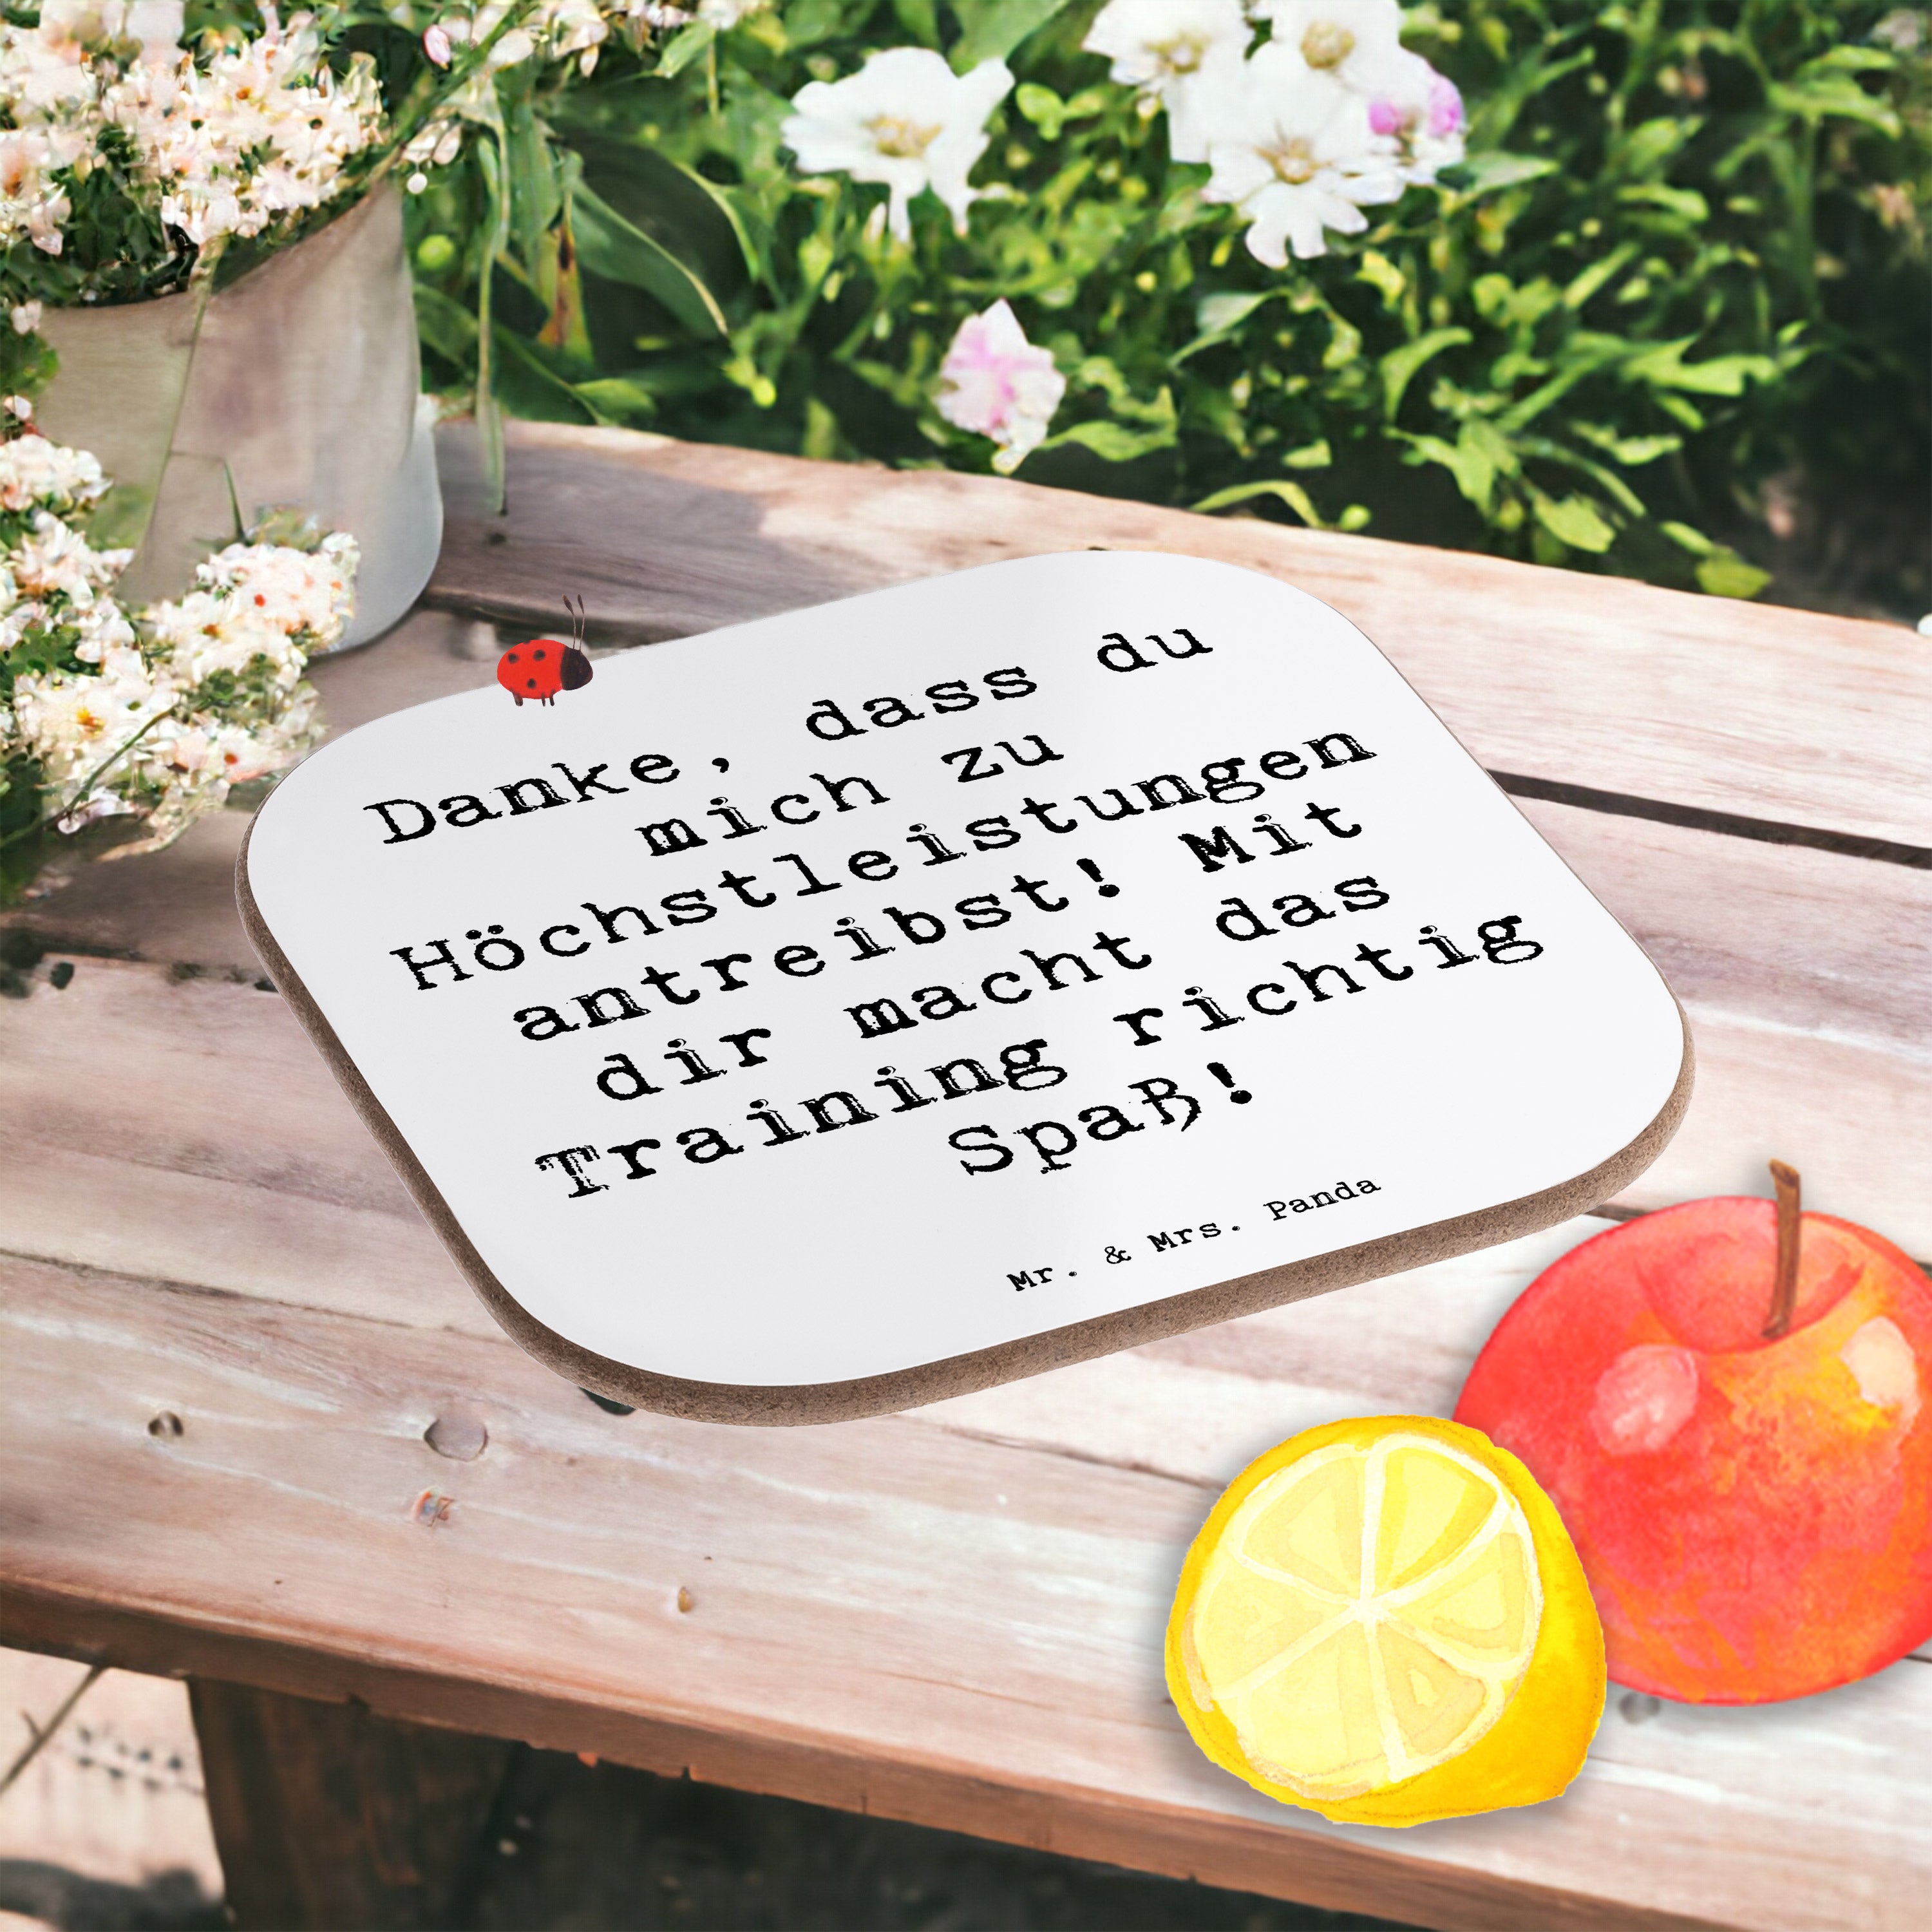 Danke, dass du
mich zu
Höchstleistungen
antreibst! Mit
dir macht das
Training richtig
Spaß!
Mr. & Mrs. Panda